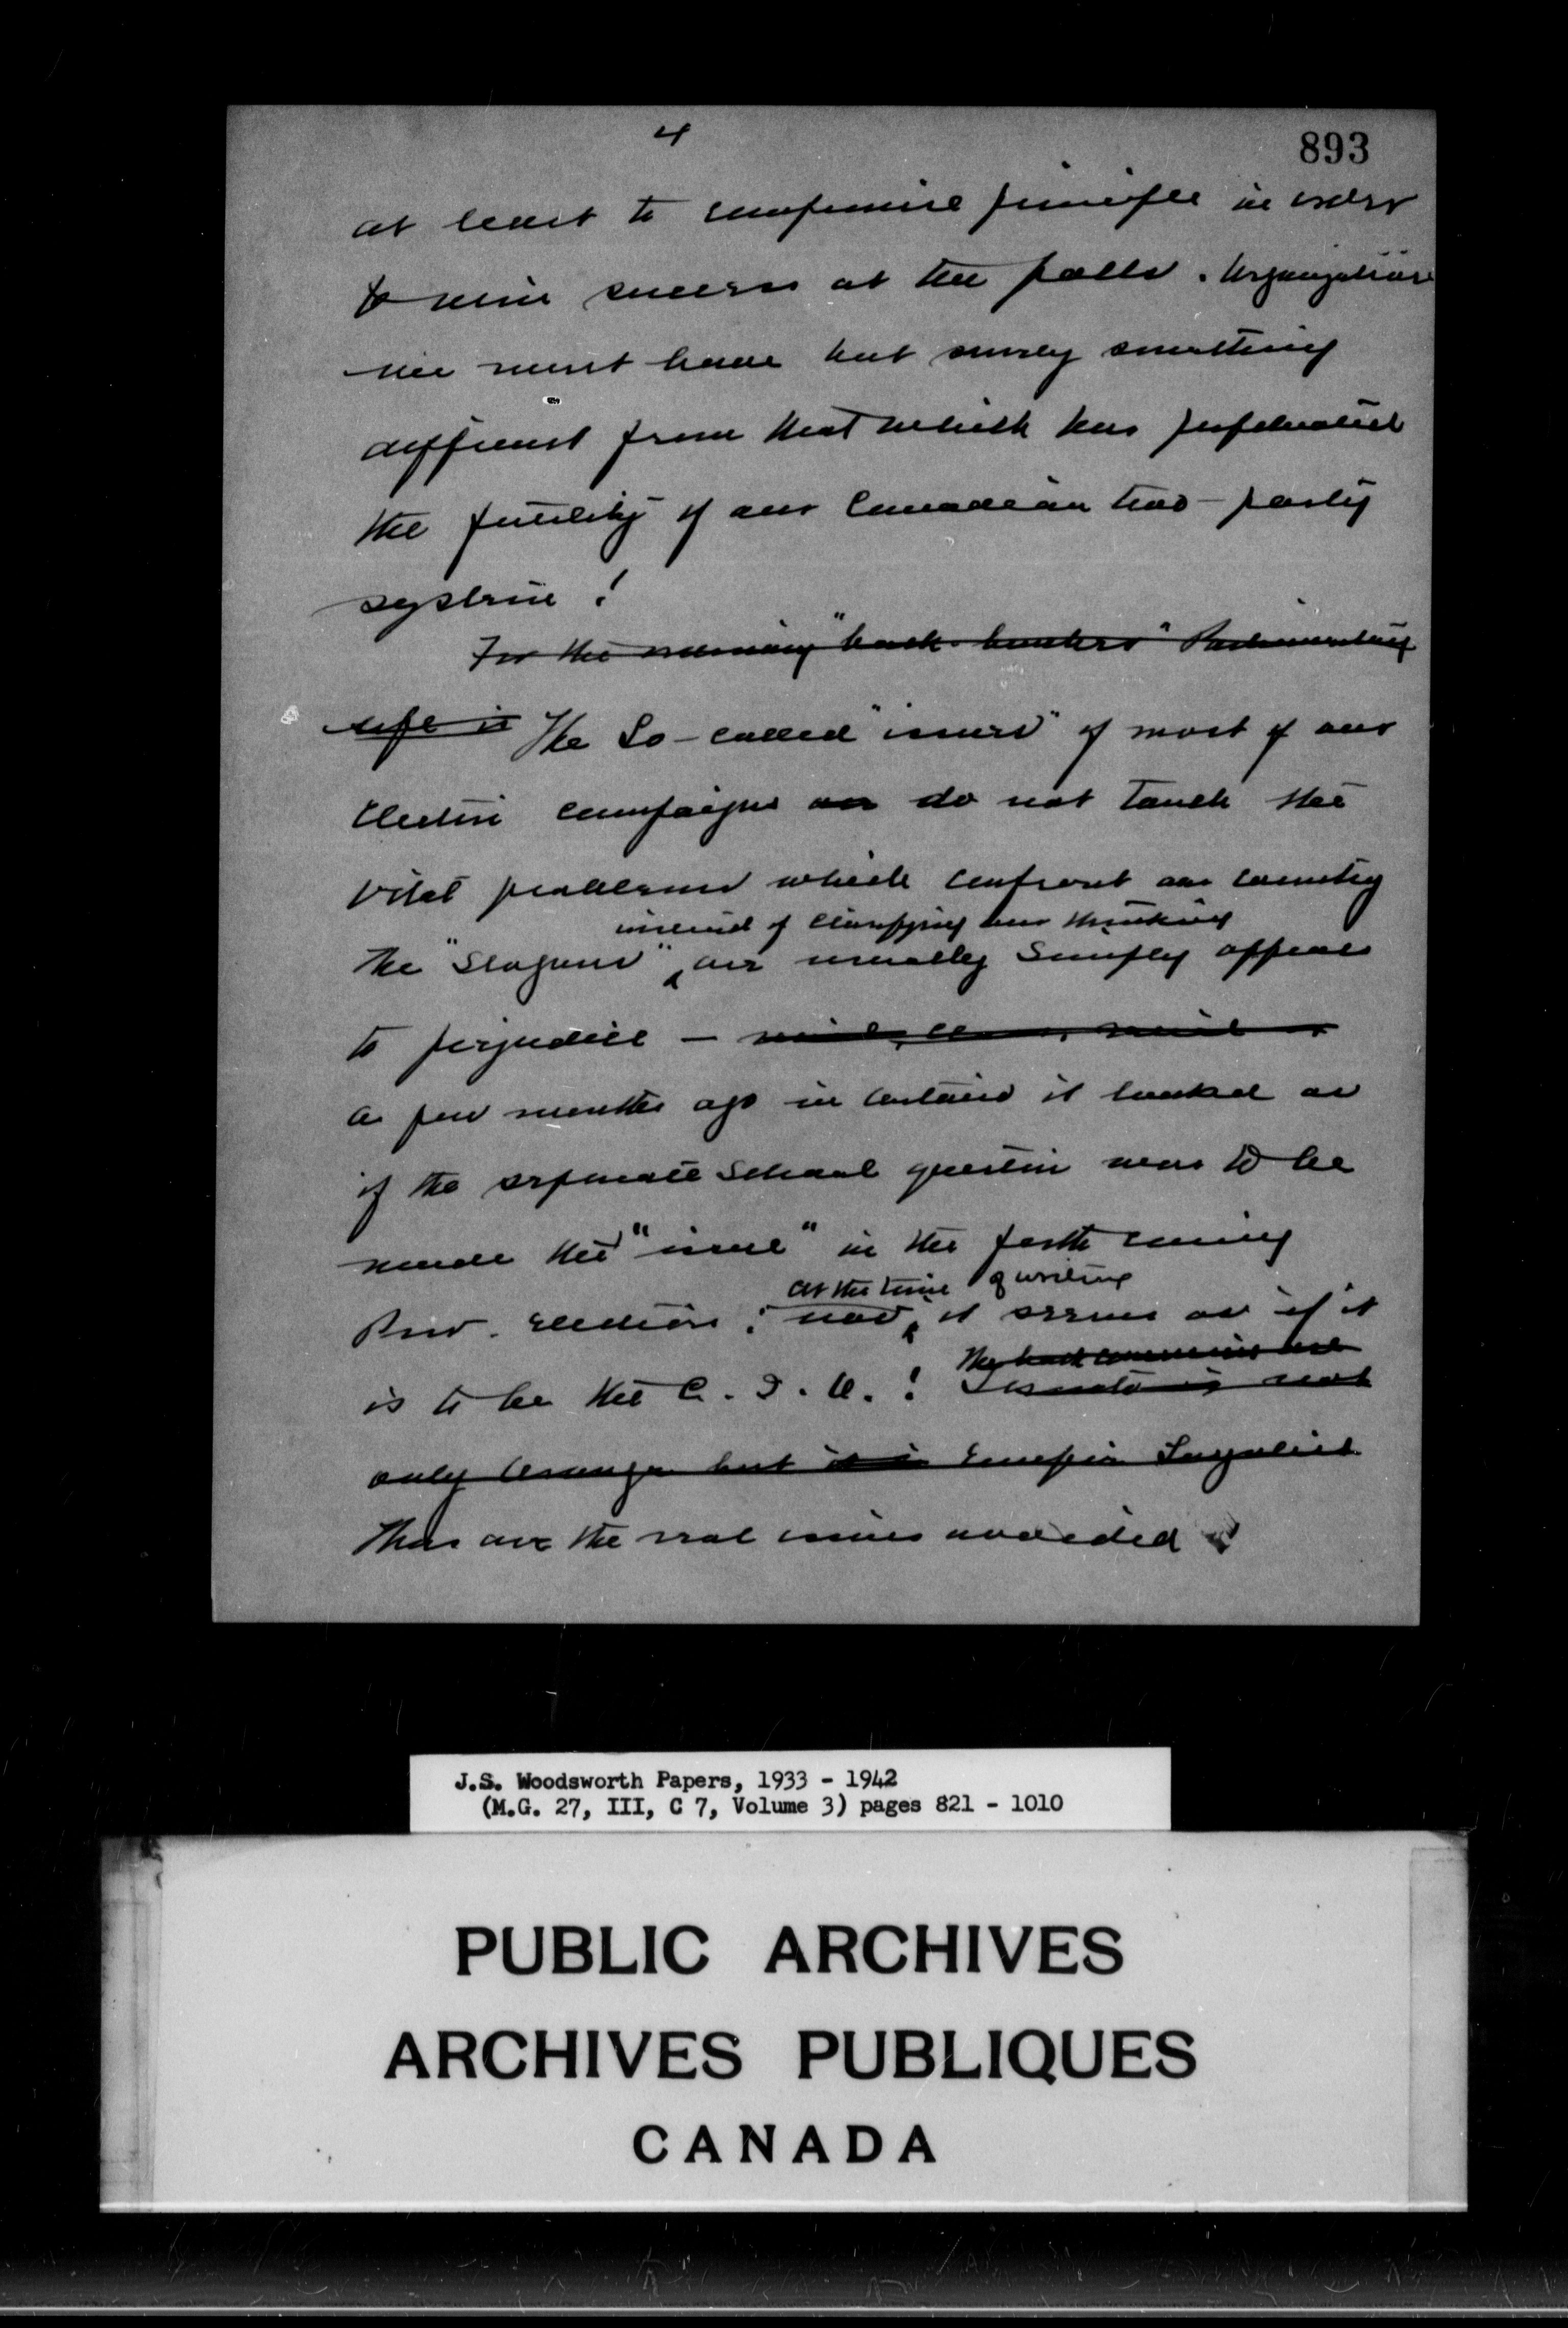 4
893
at least to compromise principle in order
to win success at the polls. Organization
we must have but surely something
different from that which has perpetuated
the futility of our Canadian two-party
system!
For the ordinary "back benchers" Parliamentary
life is The So-called "issues" of most of our
election campaigns are do not touch the
vital problems which confront our country
instead of clarifying our thinking
The "Slogans" are usually simply appeals
to prejudice —
a few months ago in Ontario it looked as
if the separate school question was to be
made the "issue" in the forth coming
at the time of writing
Prov. election; now, it seems as if it
is to be the C.I.O.!
The
not
only Orange but it is Empire Loyalist
Thus are the real issues avoided
J.S. Woodsworth Papers, 1933 - 1942
(M.G. 27, III, C 7, Volume 3) pages 821 - 1010
PUBLIC ARCHIVES
ARCHIVES PUBLIQUES
CANADA